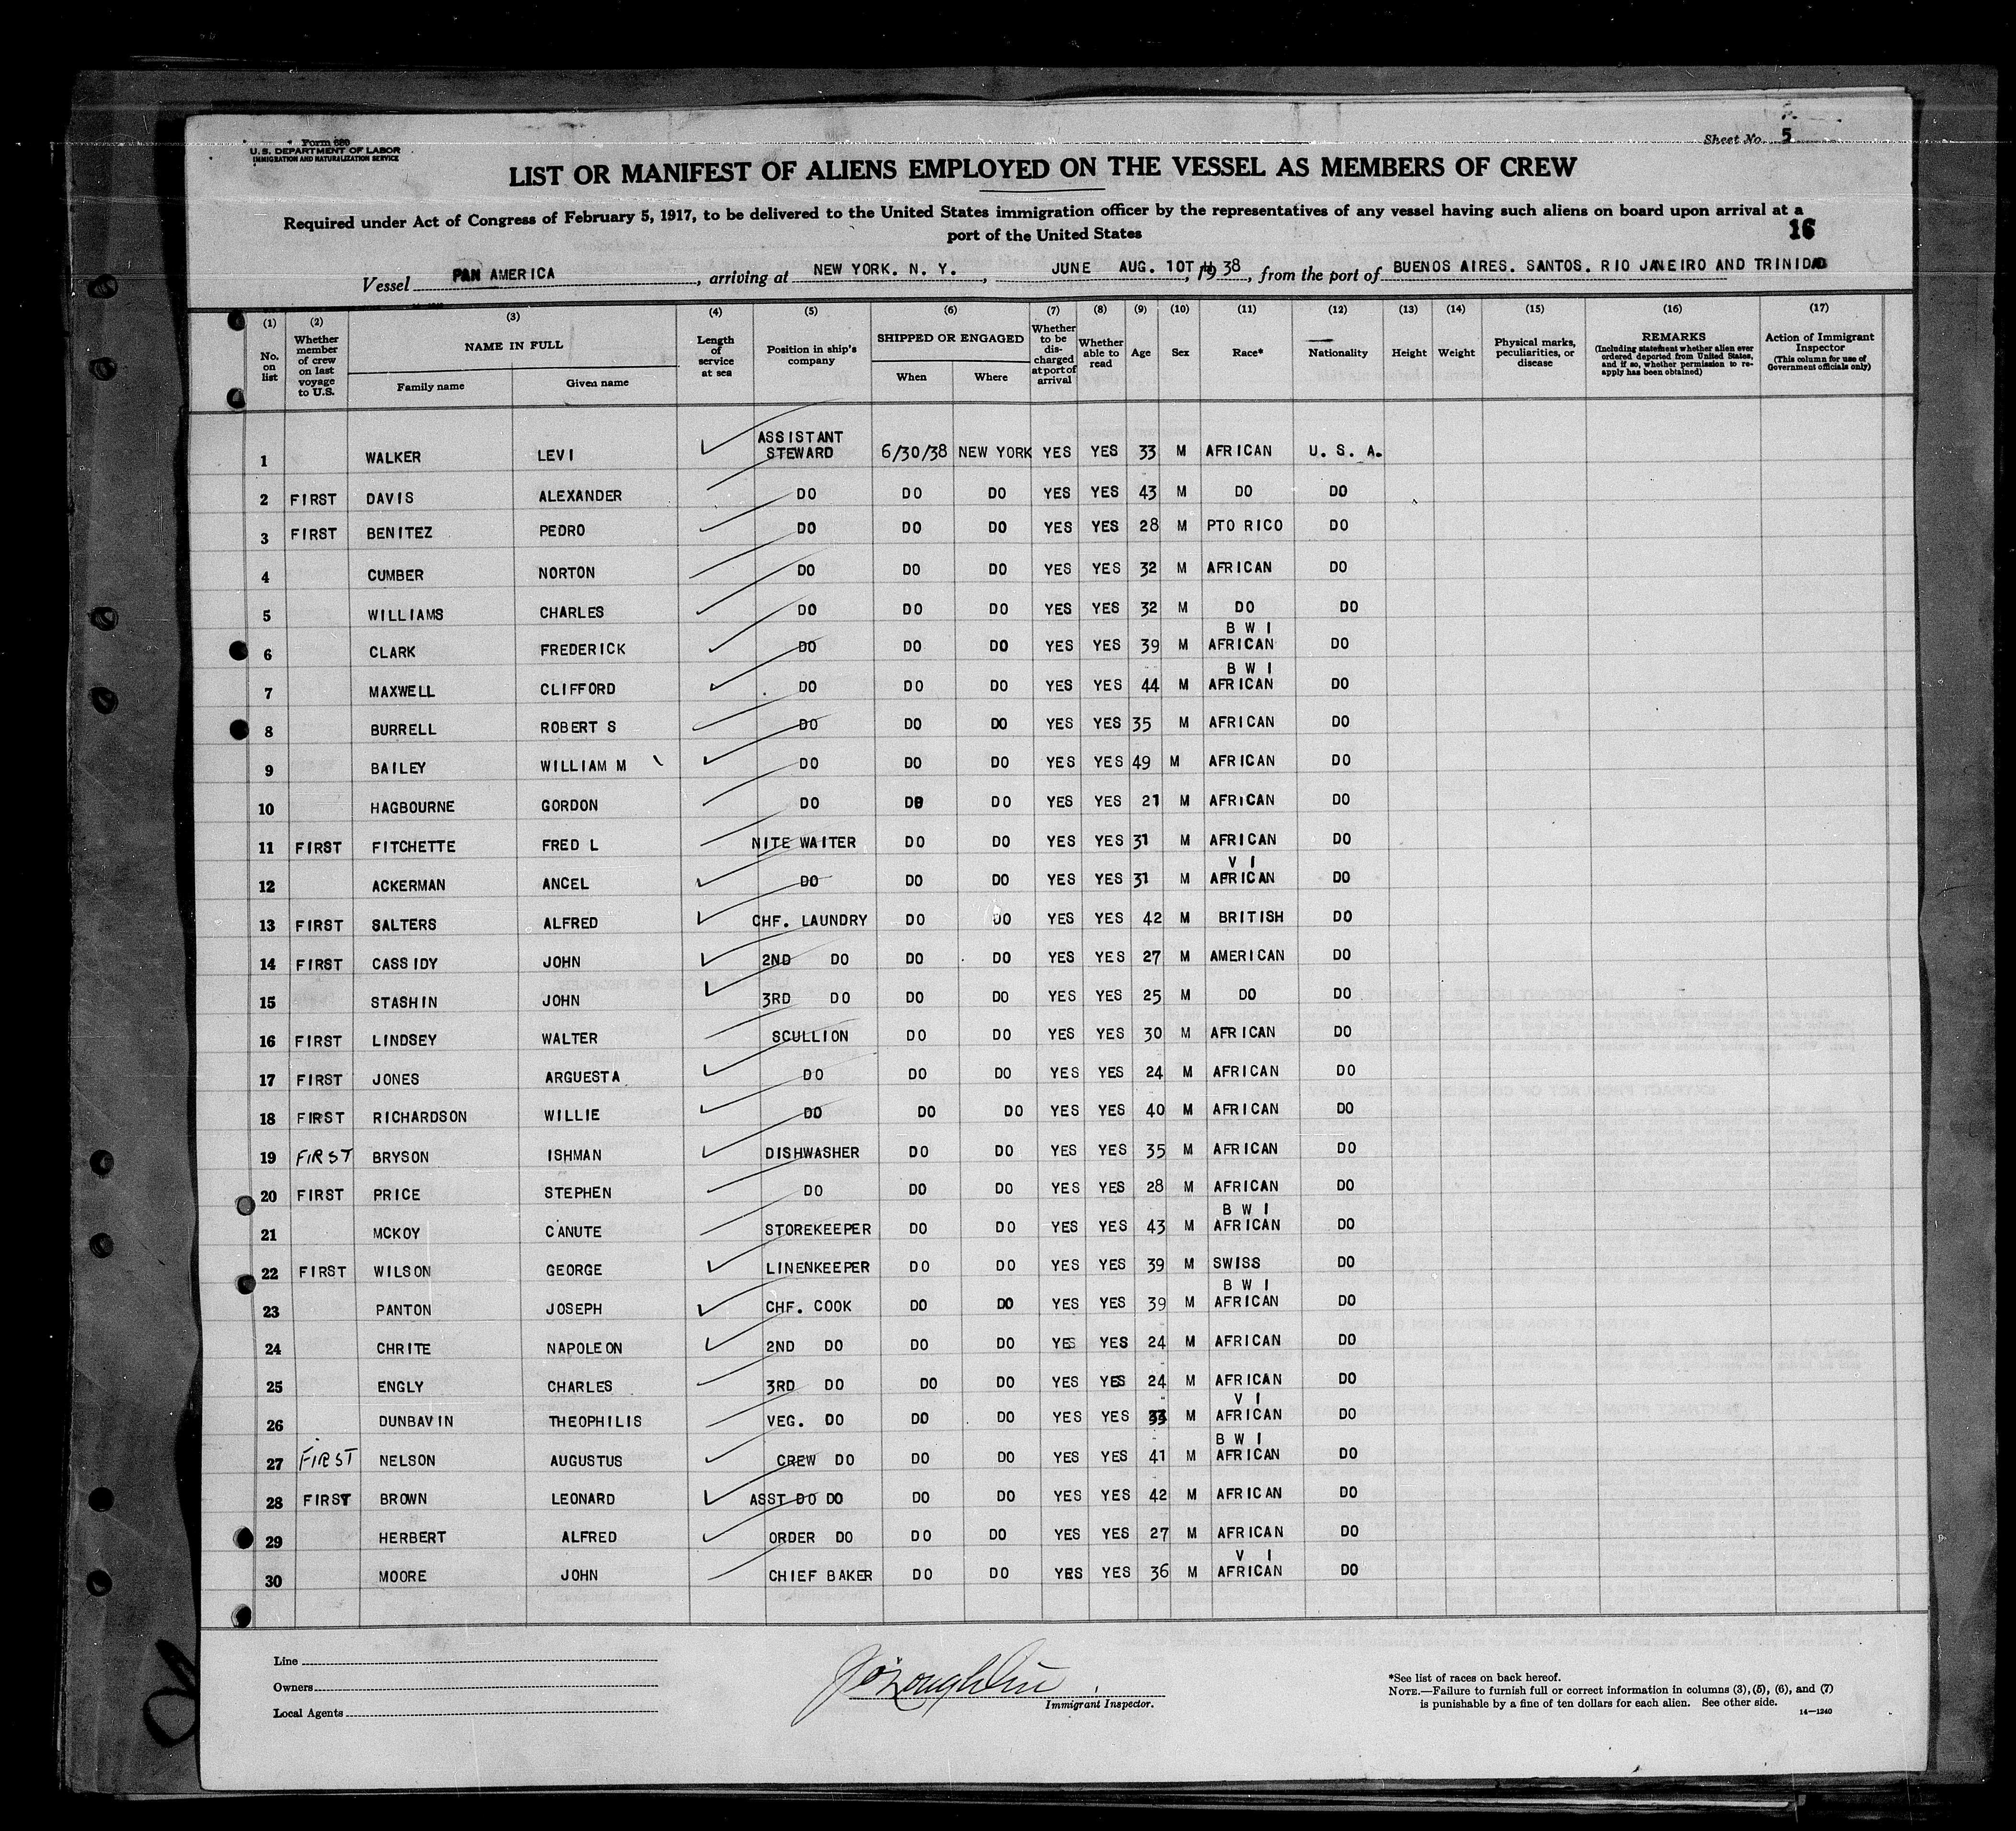 Form 680
U. S. DEPARTMENT OF LABOR
IMMIGRATION AND NATURALIZATION SERVICE
Sheet No. 5
LIST OR MANIFEST OF ALIENS EMPLOYED ON THE VESSEL AS MEMBERS OF CREW
Required under Act of Congress of February 5, 1917, to be delivered to the United States immigration officer by the representatives of any vessel having such aliens on board upon arrival at a
port of the United States
16
Vessel PAN AMERICA, arriving at NEW YORK. N. Y., JUNE AUG. 10TH, 19 38, from the port of BUENOS AIRES. SANTOS. RIO JANEIRO AND TRINIDAD
(1) (2) (3) (4) (5) (6) (7) (8) (9) (10) (11) (12) (13) (14) (15) (16) (17)
No. on list
Whether member of crew on last voyage to U.S.
NAME IN FULL
Family name Given name
Length of service at sea
Position in ship's company
SHIPPED OR ENGAGED
When Where
Whether to be discharged at port of arrival
Whether able to read
Age
Sex
Race*
Nationality
Height
Weight
Physical marks, peculiarities, or disease
REMARKS
(Including statement whether alien ever ordered deported from United States, and if so, whether permission to reapply has been obtained)
Action of Immigrant Inspector
(This column for use of Government officials only)
1 WALKER LEVI ASSISTANT STEWARD 6/30/38 NEW YORK YES YES 33 M AFRICAN U. S. A.
2 FIRST DAVIS ALEXANDER DO DO DO YES YES 43 M DO DO
3 FIRST BENITEZ PEDRO DO DO DO YES YES 28 M PTO RICO DO
4 CUMBER NORTON DO DO DO YES YES 32 M AFRICAN DO
5 WILLIAMS CHARLES DO DO DO YES YES 32 M DO DO
6 CLARK FREDERICK DO DO DO YES YES 39 M B W I AFRICAN DO
7 MAXWELL CLIFFORD DO DO DO YES YES 44 M B W I AFRICAN DO
8 BURRELL ROBERT S DO DO DO YES YES 35 M AFRICAN DO
9 BAILEY WILLIAM M DO DO DO YES YES 49 M AFRICAN DO
10 HAGBOURNE GORDON DO DO DO YES YES 21 M AFRICAN DO
11 FIRST FITCHETTE FRED L NITE WAITER DO DO YES YES 31 M AFRICAN DO
12 ACKERMAN ANCEL DO DO DO YES YES 31 M V I AFRICAN DO
13 FIRST SALTERS ALFRED CHF. LAUNDRY DO DO YES YES 42 M BRITISH DO
14 FIRST CASSIDY JOHN 2ND DO DO DO YES YES 27 M AMERICAN DO
15 STASHIN JOHN 3RD DO DO DO YES YES 25 M DO DO
16 FIRST LINDSEY WALTER SCULLION DO DO YES YES 30 M AFRICAN DO
17 FIRST JONES ARGUESTA DO DO DO YES YES 24 M AFRICAN DO
18 FIRST RICHARDSON WILLIE DO DO DO YES YES 40 M AFRICAN DO
19 FIRST BRYSON ISHMAN DISHWASHER DO DO YES YES 35 M AFRICAN DO
20 FIRST PRICE STEPHEN DO DO DO YES YES 28 M AFRICAN DO
21 MCKOY CANUTE STOREKEEPER DO DO YES YES 43 M B W I AFRICAN DO
22 FIRST WILSON GEORGE LINENKEEPER DO DO YES YES 39 M SWISS DO
23 PANTON JOSEPH CHF. COOK DO DO YES YES 39 M B W I AFRICAN DO
24 CHRITE NAPOLEON 2ND DO DO DO YES YES 24 M AFRICAN DO
25 ENGLY CHARLES 3RD DO DO DO YES YES 24 M AFRICAN DO
26 DUNBAVIN THEOPHILIS VEG. DO DO DO YES YES 33 M V I AFRICAN DO
27 FIRST NELSON AUGUSTUS CREW DO DO DO YES YES 41 M B W I AFRICAN DO
28 FIRST BROWN LEONARD ASST DO DO DO DO YES YES 42 M AFRICAN DO
29 HERBERT ALFRED ORDER DO DO DO YES YES 27 M AFRICAN DO
30 MOORE JOHN CHIEF BAKER DO DO YES YES 36 M V I AFRICAN DO
Line
Owners
Local Agents
Immigrant Inspector.
*See list of races on back hereof.
NOTE.—Failure to furnish full or correct information in columns (3), (5), (6), and (7)
is punishable by a fine of ten dollars for each alien. See other side.
14—1240